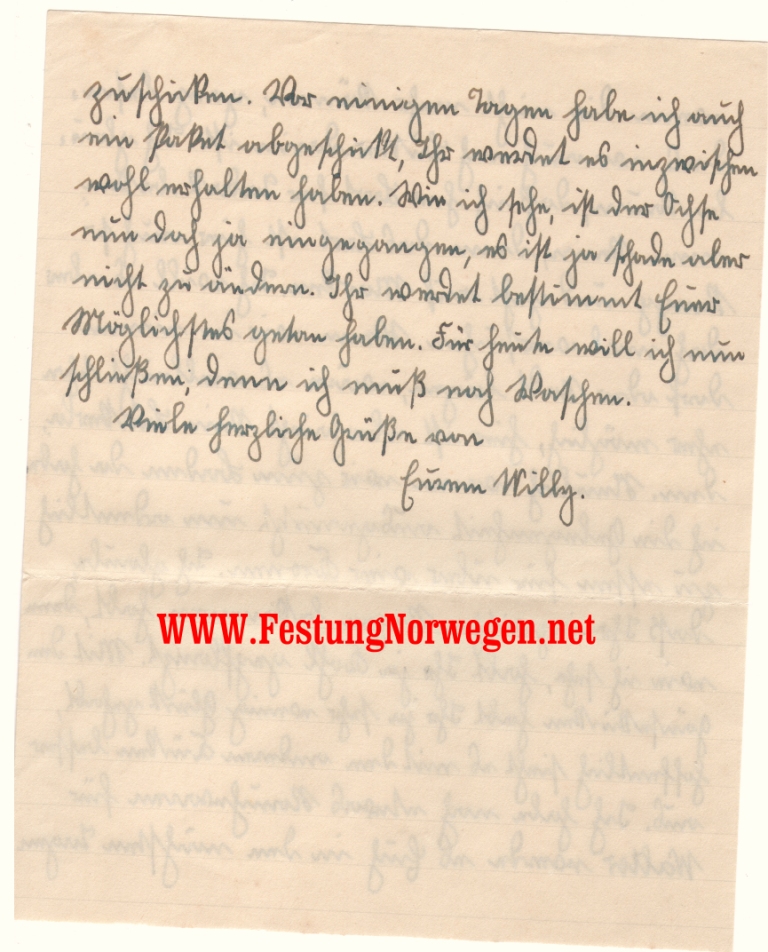 zuschicken. Vor einigen Tagen habe ich auch
ein Paket abgeschickt, Ihr werdet es inzwischen
wohl erhalten haben. Wie ich sehe, ist der Ochse
nun doch ja eingegangen, es ist ja schade aber
nicht zu ändern. Ihr werdet bestimmt Euer
Möglichstes getan haben. Für heute will ich nun
schließen, denn ich muß noch Waschen.
Viele herzliche Grüße von
Eurem Willy.
WWW.FestungNorwegen.net